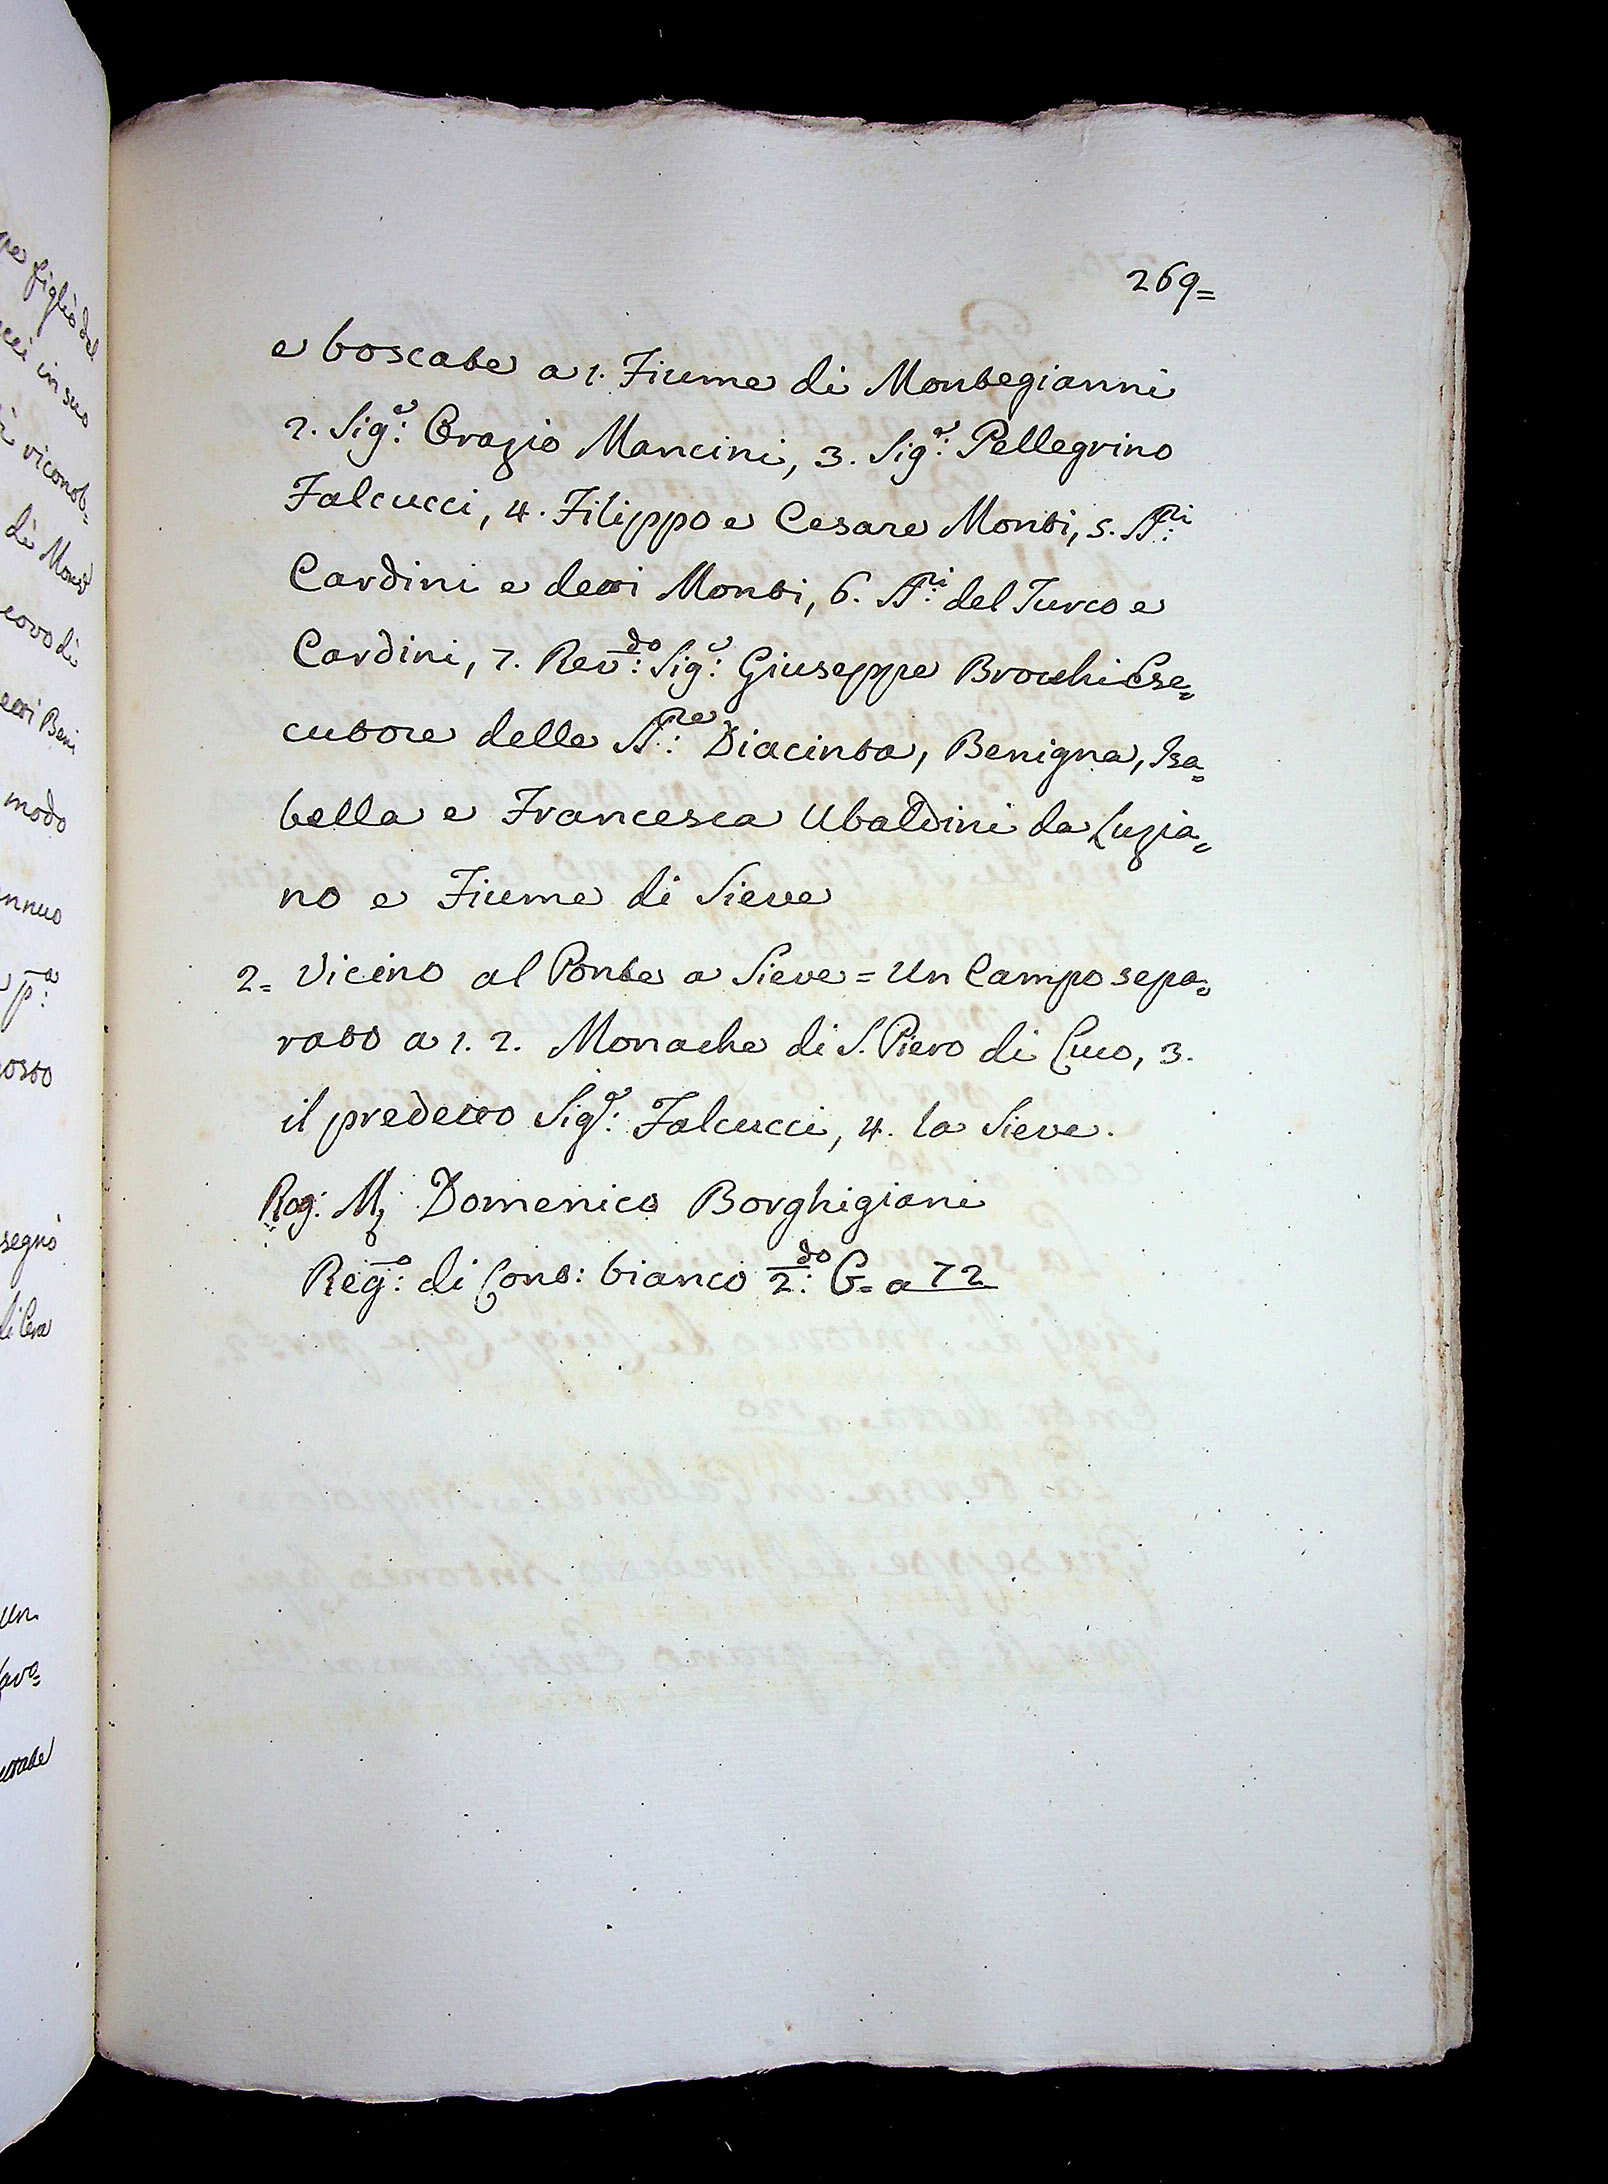 269=
e boscate a 1. Fiume di Montegianni
2. Sig.e Orazio Mancini, 3. Sig.e Pellegrino
Falcucci, 4. Filippo e Cesare Monti, 5. SS.ri
Cardini e detti Monti, 6. SS.ri del Turco e
Cardini, 7. Rev.do Sig.e Giuseppe Brocchi Ese=
cutore delle SS.re Diacinta, Benigna, Isa=
bella e Francesca Ubaldini da Luzia=
no e Fiume di Sieve
2= Vicino al Ponte a Sieve = Un Campo sepa=
rato a 1. 2. Monache di S. Piero di Luco, 3.
il predetto Sig.e Falcucci, 4. la Sieve.
Rog: M. Domenico Borghigiani
Reg.o: di Cont: bianco 2.do G= a 72
pe figlio del
cci in suo
riconob=
di Mons
uovo di
etti Beni
modo
nnuo
p.a:
osto
segnò
Un